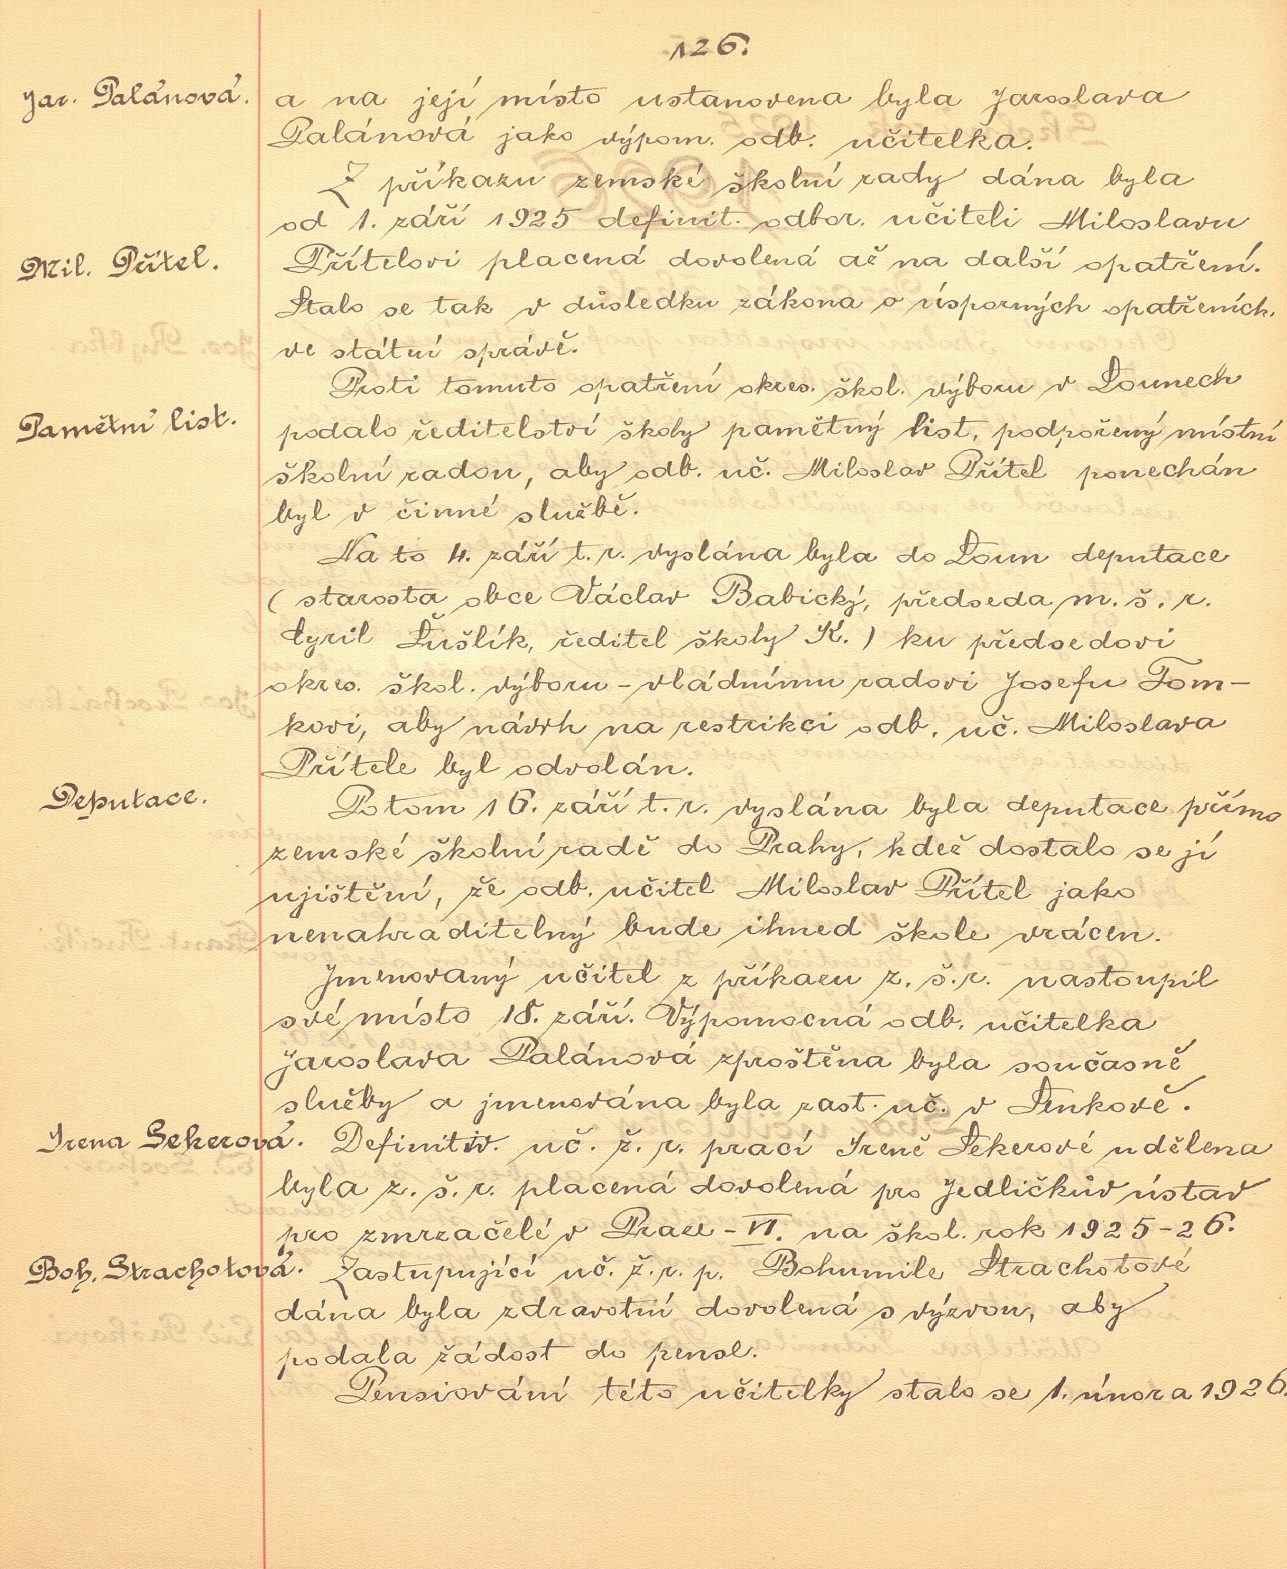 126.
Jar. Palánová.
a na její místo ustanovena byla Jaroslava
Palánová jako výpom. odb. učitelka.
Z příkazu zemské školní rady dána byla
od 1. září 1925 definit. odbor. učiteli Miloslavu
Mil. Přítel.
Přítelovi placená dovolená až na další opatření.
Stalo se tak v důsledku zákona o úsporných opatřeních.
ve státní správě.
Proti tomuto opatření okres. škol. výboru v Lounech
Pamětní list.
podalo ředitelství školy pamětný list, podpořený místní
školní radou, aby odb. uč. Miloslav Přítel ponechán
byl v činné službě.
Na to 4. září t. r. vyslána byla do Loun deputace
( starosta obce Václav Babický, předseda m. š. r.
Cyril Sušlík, ředitel školy K. ) ku předsedovi
okres. škol. výboru - vládnímu radovi Josefu Tom-
kovi, aby návrh na restrikci odb. uč. Miloslava
Přítele byl odvolán.
Deputace.
Potom 16. září t. r. vyslána byla deputace přímo
zemské školní radě do Prahy, kdež dostalo se jí
ujištění, že odb. učitel Miloslav Přítel jako
nenahraditelný bude ihned škole vrácen.
Jmenovaný učitel z příkazu z. š. r. nastoupil
své místo 18. září. Výpomocná odb. učitelka
Jaroslava Palánová zproštěna byla současně
služby a jmenována byla zast. uč. v Lenkově.
Irena Sekerová.
Definitiv. uč. ž. r. prací Ireně Sekerové udělena
byla z. š. r. placená dovolená pro Jedličkův ústav
pro zmrzačelé v Praze - VI. na škol. rok 1925-26.
Boh. Strachotová.
Zastupující uč. ž. r. p. Bohumile Strachotové
dána byla zdravotní dovolená s výzvou, aby
podala žádost do pense.
Pensiování této učitelky stalo se 1. února 1926.